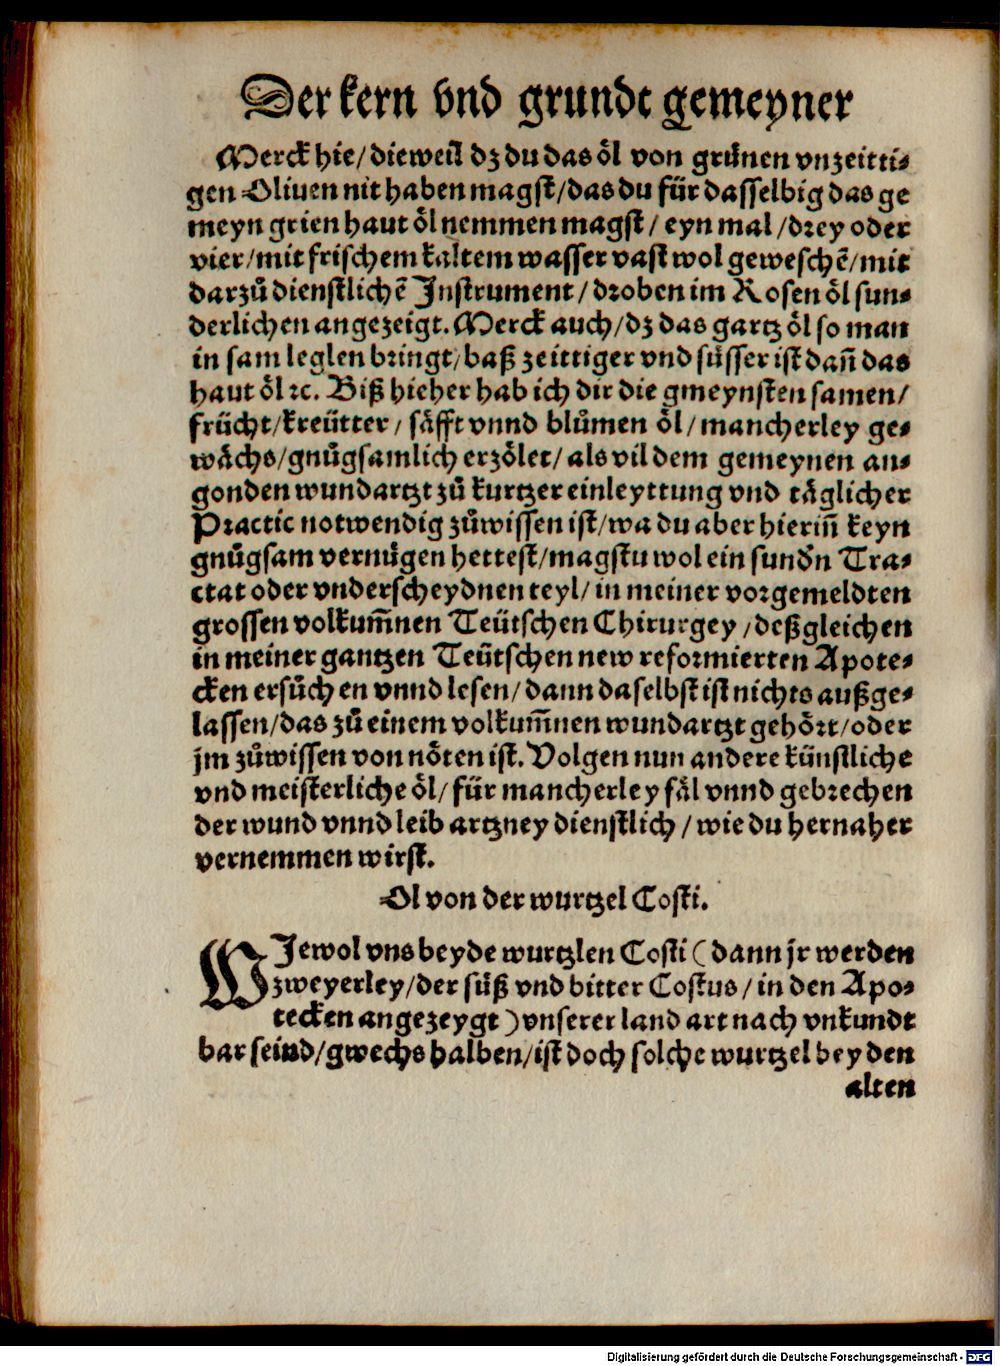 Der kern vnd grundt gemeyner
Merck hie/ dieweil dz du das oͤl von gruͤnen vnzeitti-
gen Oliuen nit haben magst/ das du für dasselbig das ge
meyn grien haut oͤl nemmen magst/ eyn mal/ drey oder
vier/ mit frischem kaltem wasser vast wol geweschē/ mit
darzuͦ dienstlichē Instrument/ droben im Rosen oͤl sun-
derlichen angezeigt. Merck auch/ dz das gartz oͤl so man
in sam leglen bringt/ baß zeittiger vnd suͤsser ist dañ das
haut oͤl ꝛc. Biß hieher hab ich dir die gmeynsten samen/
frücht/ kreütter/ saͤfft vnnd bluͦmen oͤl/ mancherley ge-
waͤchs/ gnuͦgsamlich erzoͤlet/ als vil dem gemeynen an-
gonden wundartzt zuͦ kurtzer einleyttung vnd taͤglicher
Practic notwendig zuͦwissen ist/ wa du aber hieriñ keyn
gnuͦgsam vernuͤgen hettest/ magstu wol ein sundn̄ Tra-
ctat oder vnderscheydnen teyl/ in meiner vorgemeldten
grossen volkum̄nen Teütschen Chirurgey/ deßgleichen
in meiner gantzen Teütschen new reformierten Apote-
cken ersuͦchen vnnd lesen/ dann daselbst ist nichts außge-
lassen/ das zuͦ einem volkum̄nen wundartzt gehoͤrt/ oder
jm zuͦwissen von noͤten ist. Volgen nun andere künstliche
vnd meisterliche oͤl/ für mancherley faͤl vnnd gebrechen
der wund vnnd leib artzney dienstlich/ wie du hernaher
vernemmen wirst.
Ol von der wurtzel Costi.
WIewol vns beyde wurtzlen Costi (dann jr werden
zweyerley/ der süß vnd bitter Costus/ in den Apo-
tecken angezeygt) vnserer land art nach vnkundt
bar seind/ gwechs halben/ ist doch solche wurtzel bey den
alten
Digitalisierung gefördert durch die Deutsche Forschungsgemeinschaft - DFG